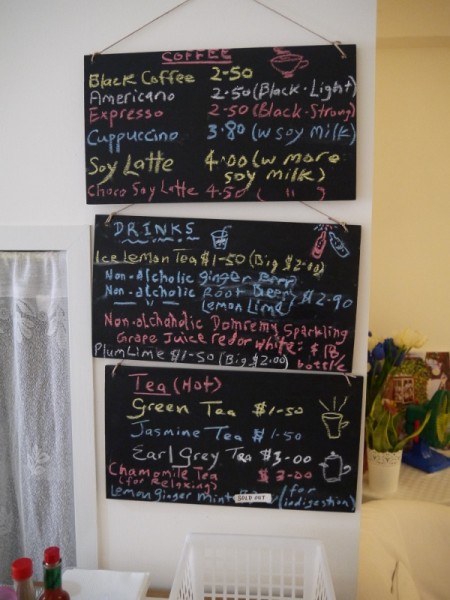 COFFEE
Black Coffee 2-50
Americano 2-50 (Black-Light)
Expresso 2-50 (Black-Strong)
Cuppuccino 3.80 (w soy milk)
Soy Latte 4.00 (w more
soy milk)
Choco Soy Latte 4.50 ( " )
DRINKS
Ice Lemon Tea $1-50 (Big $2-00)
Non-alcholic ginger Beer
Non-alcholic Root Beer
Lemon Lime $2-90
Non-alchaholic Domremy Sparkling
Grape Juice red or white: $18/
bottle
Plum Lime $1-50 (Big $2.00)
Tea (Hot)
Green Tea $1-50
Jasmine Tea $1-50
Earl Grey Tea $3-00
Chamomile Tea $3-00
(for Relaxing)
Lemon ginger mint SOLD OUT (for
indigestion)